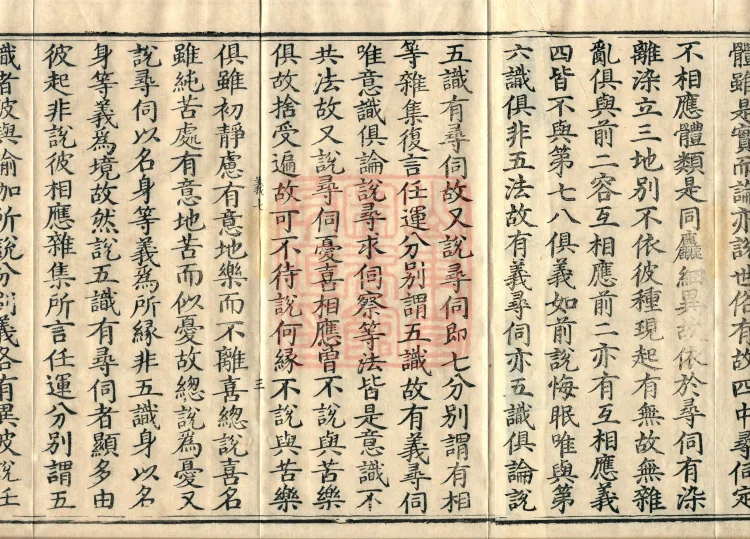 體雖是實而論亦說世俗有故四中尋伺定
不相應體類是同麤細異故依於尋伺有染
離染立三地別不依彼種現起有無故無雜
亂俱與前二容互相應前二亦有互相應義
四皆不與第七八俱義如前說悔眠唯與第
六識俱非五法故有義尋伺亦五識俱論說
五識有尋伺故又說尋伺即七分別謂有相
等雜集復言任運分別謂五識故有義尋伺
唯意識俱論說尋求伺察等法皆是意識不
共法故又說尋伺憂喜相應曾不說與苦樂
俱故捨受遍故可不待說何緣不說與苦樂
三
俱雖初靜慮有意地樂而不離喜總說喜名
雖純苦處有意地苦而似憂故總說為憂又
說尋伺以名身等義爲所緣非五識身以名
身等義爲境故然說五識有尋伺者顯多由
彼起非說彼相應雜集所言任運分別謂五
識者彼與瑜伽所說分別義各有異彼說任